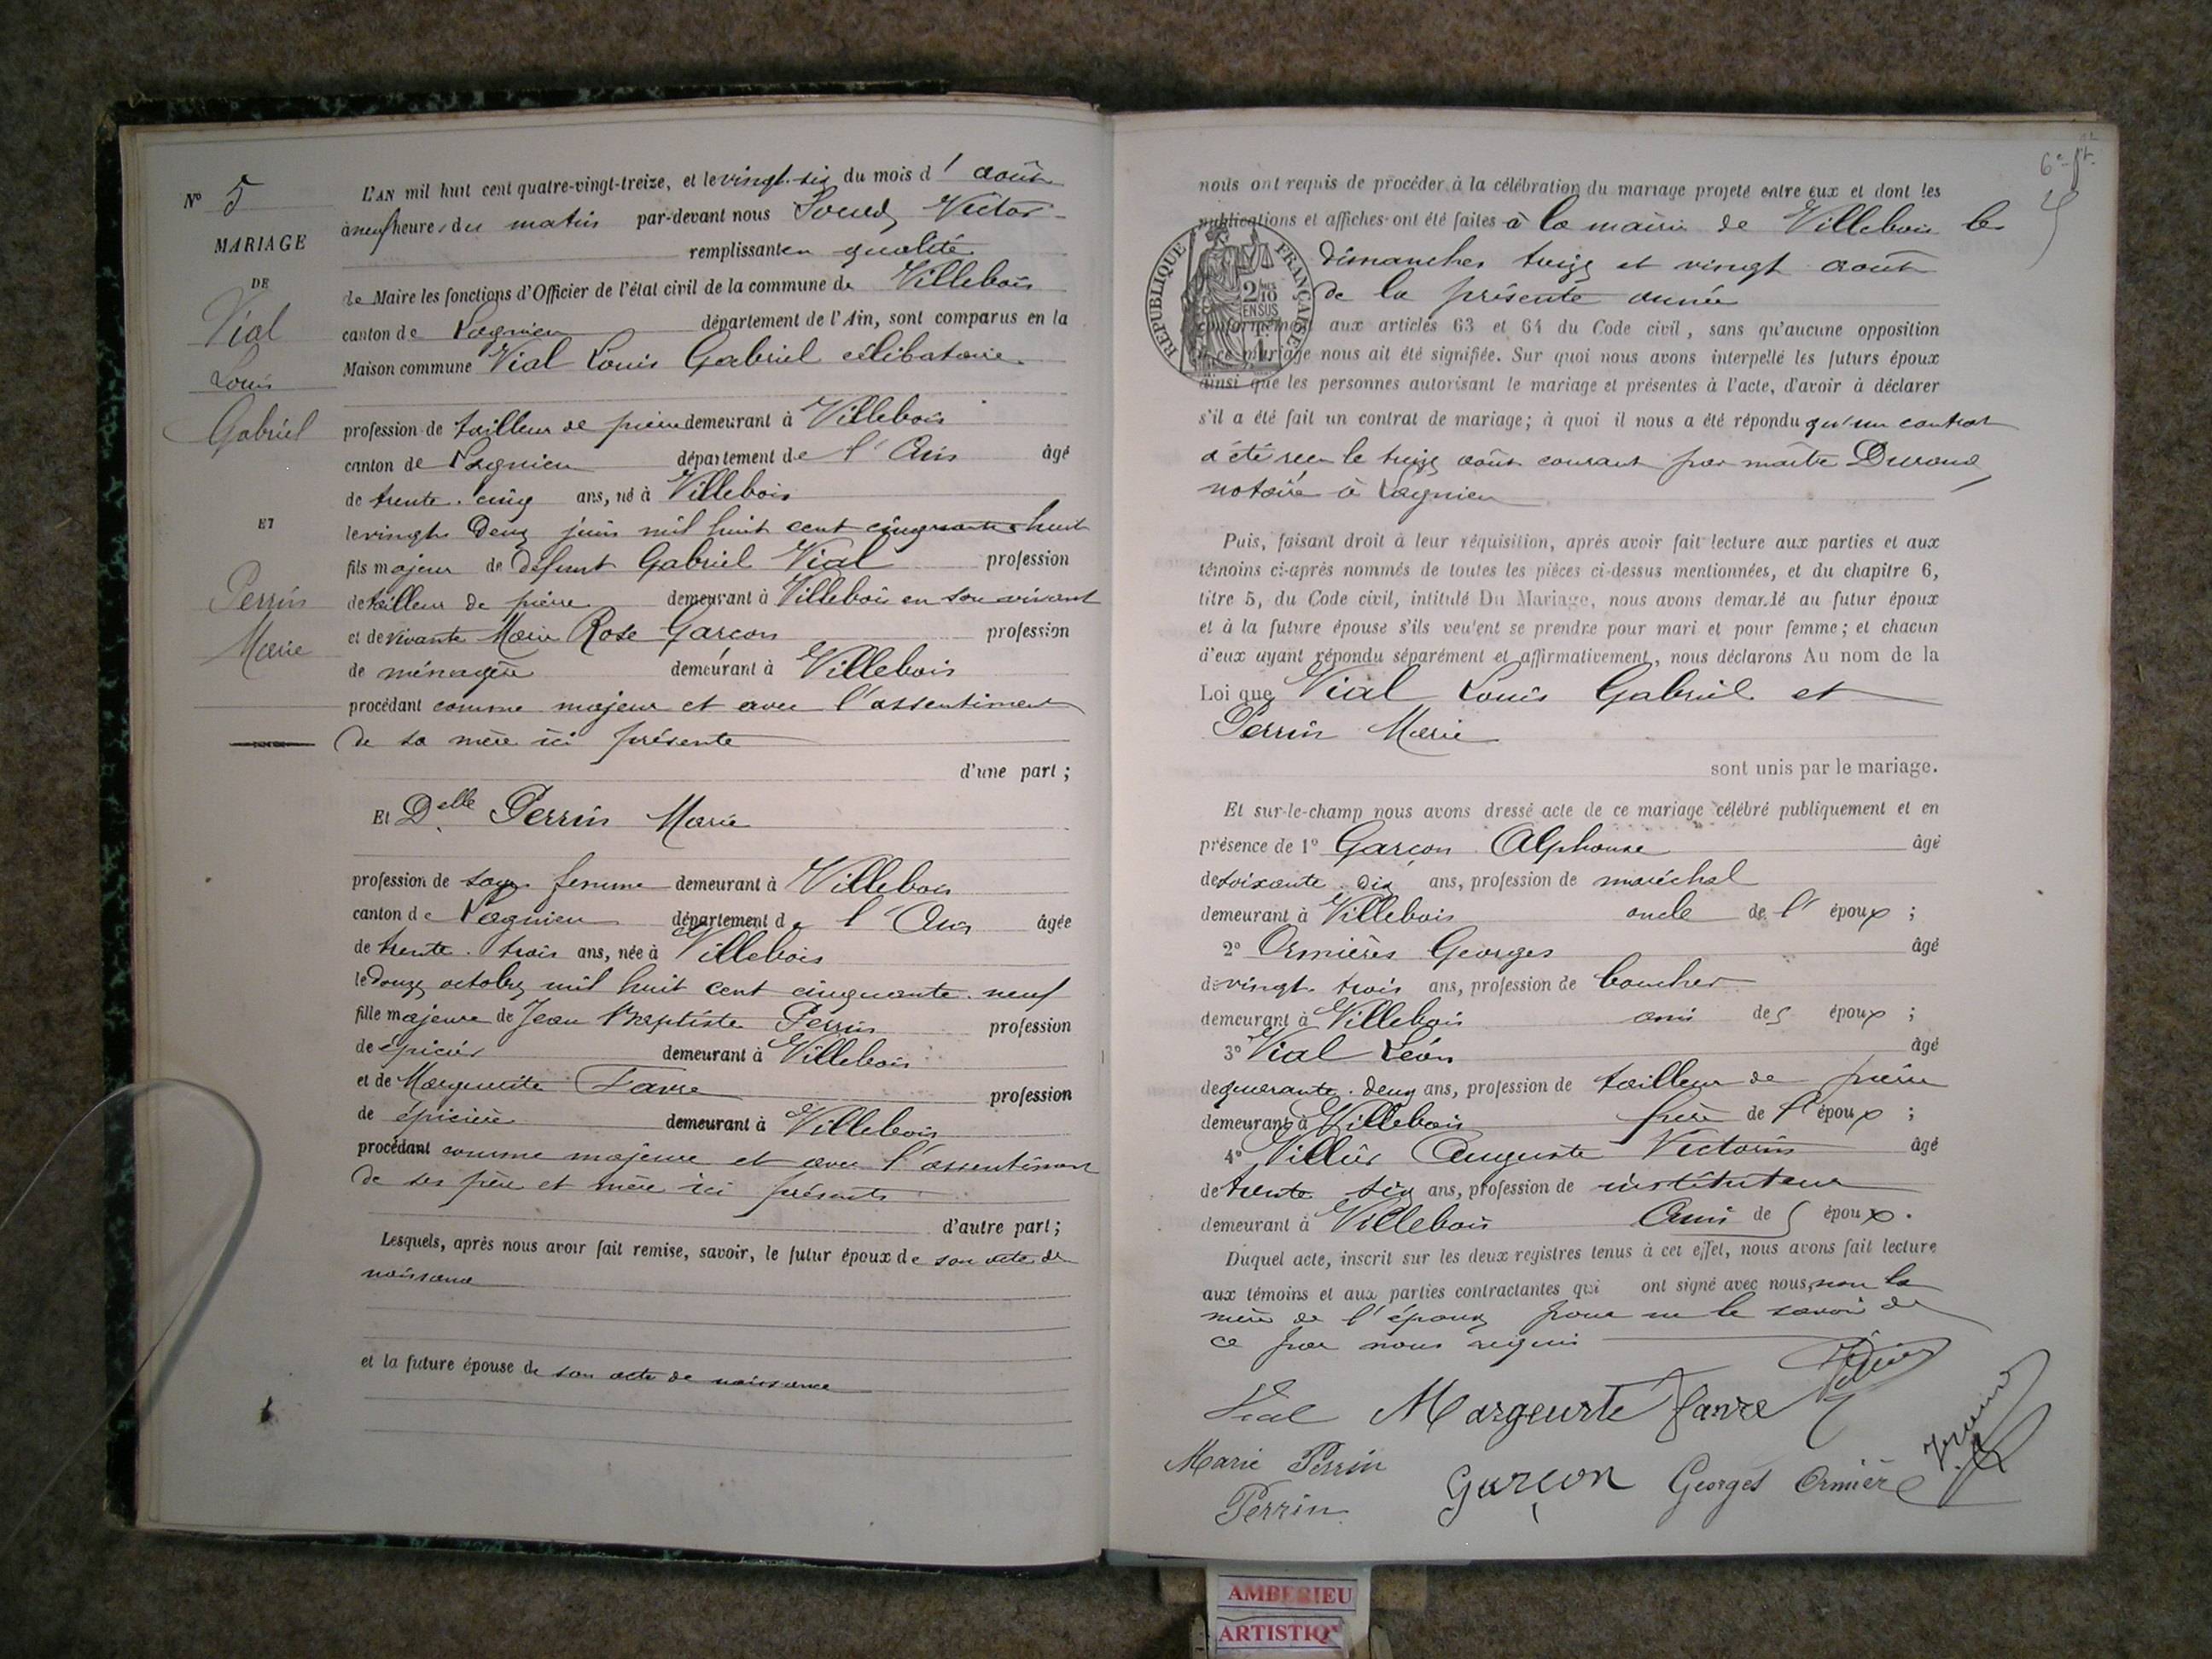 N° 5
MARIAGE
DE
Vial
Louis
Gabriel
ET
Perrin
Marie
L'AN mil huit cent quatre-vingt-treize, et le vingt-six du mois d'août
à neuf heures du matin par-devant nous Victor
remplissant en qualité
de Maire les fonctions d'Officier de l'état civil de la commune de Villebois
canton de Lagnieu département de l'Ain, sont comparus en la
Maison commune Vial Louis Gabriel célibataire
profession de tailleur de pierre demeurant à Villebois
canton de Lagnieu département de l'Ain âgé
de trente-cinq ans, né à Villebois
le vingt deux juin mil huit cent cinquante huit
fils majeur de défunt Gabriel Vial profession
de tailleur de pierre demeurant à Villebois en son vivant
et de vivante Marie Rose Garçon profession
de ménagère demeurant à Villebois
procédant comme majeur et avec l'assentiment
de sa mère ici présente
d'une part ;
Et Delle Perrin Marie
profession de sage femme demeurant à Villebois
canton de Lagnieu département de l'Ain âgée
de trente-trois ans, née à Villebois
le douze octobre mil huit cent cinquante-neuf
fille majeure de Jean Baptiste Perrin profession
de épicier demeurant à Villebois
et de Marguerite Favre profession
de épicière demeurant à Villebois
procédant comme majeure et avec l'assentiment
de ses père et mère ici présents
d'autre part ;
Lesquels, après nous avoir fait remise, savoir, le futur époux de son acte de
naissance
et la future épouse de son acte de naissance
6e ft.
nous ont requis de procéder à la célébration du mariage projeté entre eux et dont les
publications et affiches ont été faites à la mairie de Villebois les
dimanches treize et vingt août
de la présente année
RÉPUBLIQUE FRANÇAISE
2/10 EN SUS
conformément aux articles 63 et 64 du Code civil, sans qu'aucune opposition
à ce mariage nous ait été signifiée. Sur quoi nous avons interpellé les futurs époux
ainsi que les personnes autorisant le mariage et présentes à l'acte, d'avoir à déclarer
s'il a été fait un contrat de mariage ; à quoi il nous a été répondu qu'un contrat
a été reçu le treize août courant par maître Durand
notaire à Lagnieu
Puis, faisant droit à leur réquisition, après avoir fait lecture aux parties et aux
témoins ci-après nommés de toutes les pièces ci-dessus mentionnées, et du chapitre 6,
titre 5, du Code civil, intitulé Du Mariage, nous avons demandé au futur époux
et à la future épouse s'ils veulent se prendre pour mari et pour femme ; et chacun
d'eux ayant répondu séparément et affirmativement, nous déclarons Au nom de la
Loi que Vial Louis Gabriel et
Perrin Marie
sont unis par le mariage.
Et sur-le-champ nous avons dressé acte de ce mariage célébré publiquement et en
présence de 1° Garçon Alphonse âgé
de soixante-dix ans, profession de maréchal
demeurant à Villebois oncle de l'époux ;
2° Ormières Georges âgé
de vingt-trois ans, profession de boucher
demeurant à Villebois ami des époux ;
3° Vial Léon âgé
de quarante-deux ans, profession de tailleur de pierre
demeurant à Villebois frère de l'époux ;
4° Auguste Victorin âgé
de trente six ans, profession de instituteur
demeurant à Villebois Ami des époux.
Duquel acte, inscrit sur les deux registres tenus à cet effet, nous avons fait lecture
aux témoins et aux parties contractantes qui ont signé avec nous, non la
mère de l'époux pour ne le savoir de
ce par nous requis
Vial Margeurte Favre
Marie Perrin
Garçon Georges Ormière
Perrin
AMBERIEU
ARTISTIQ